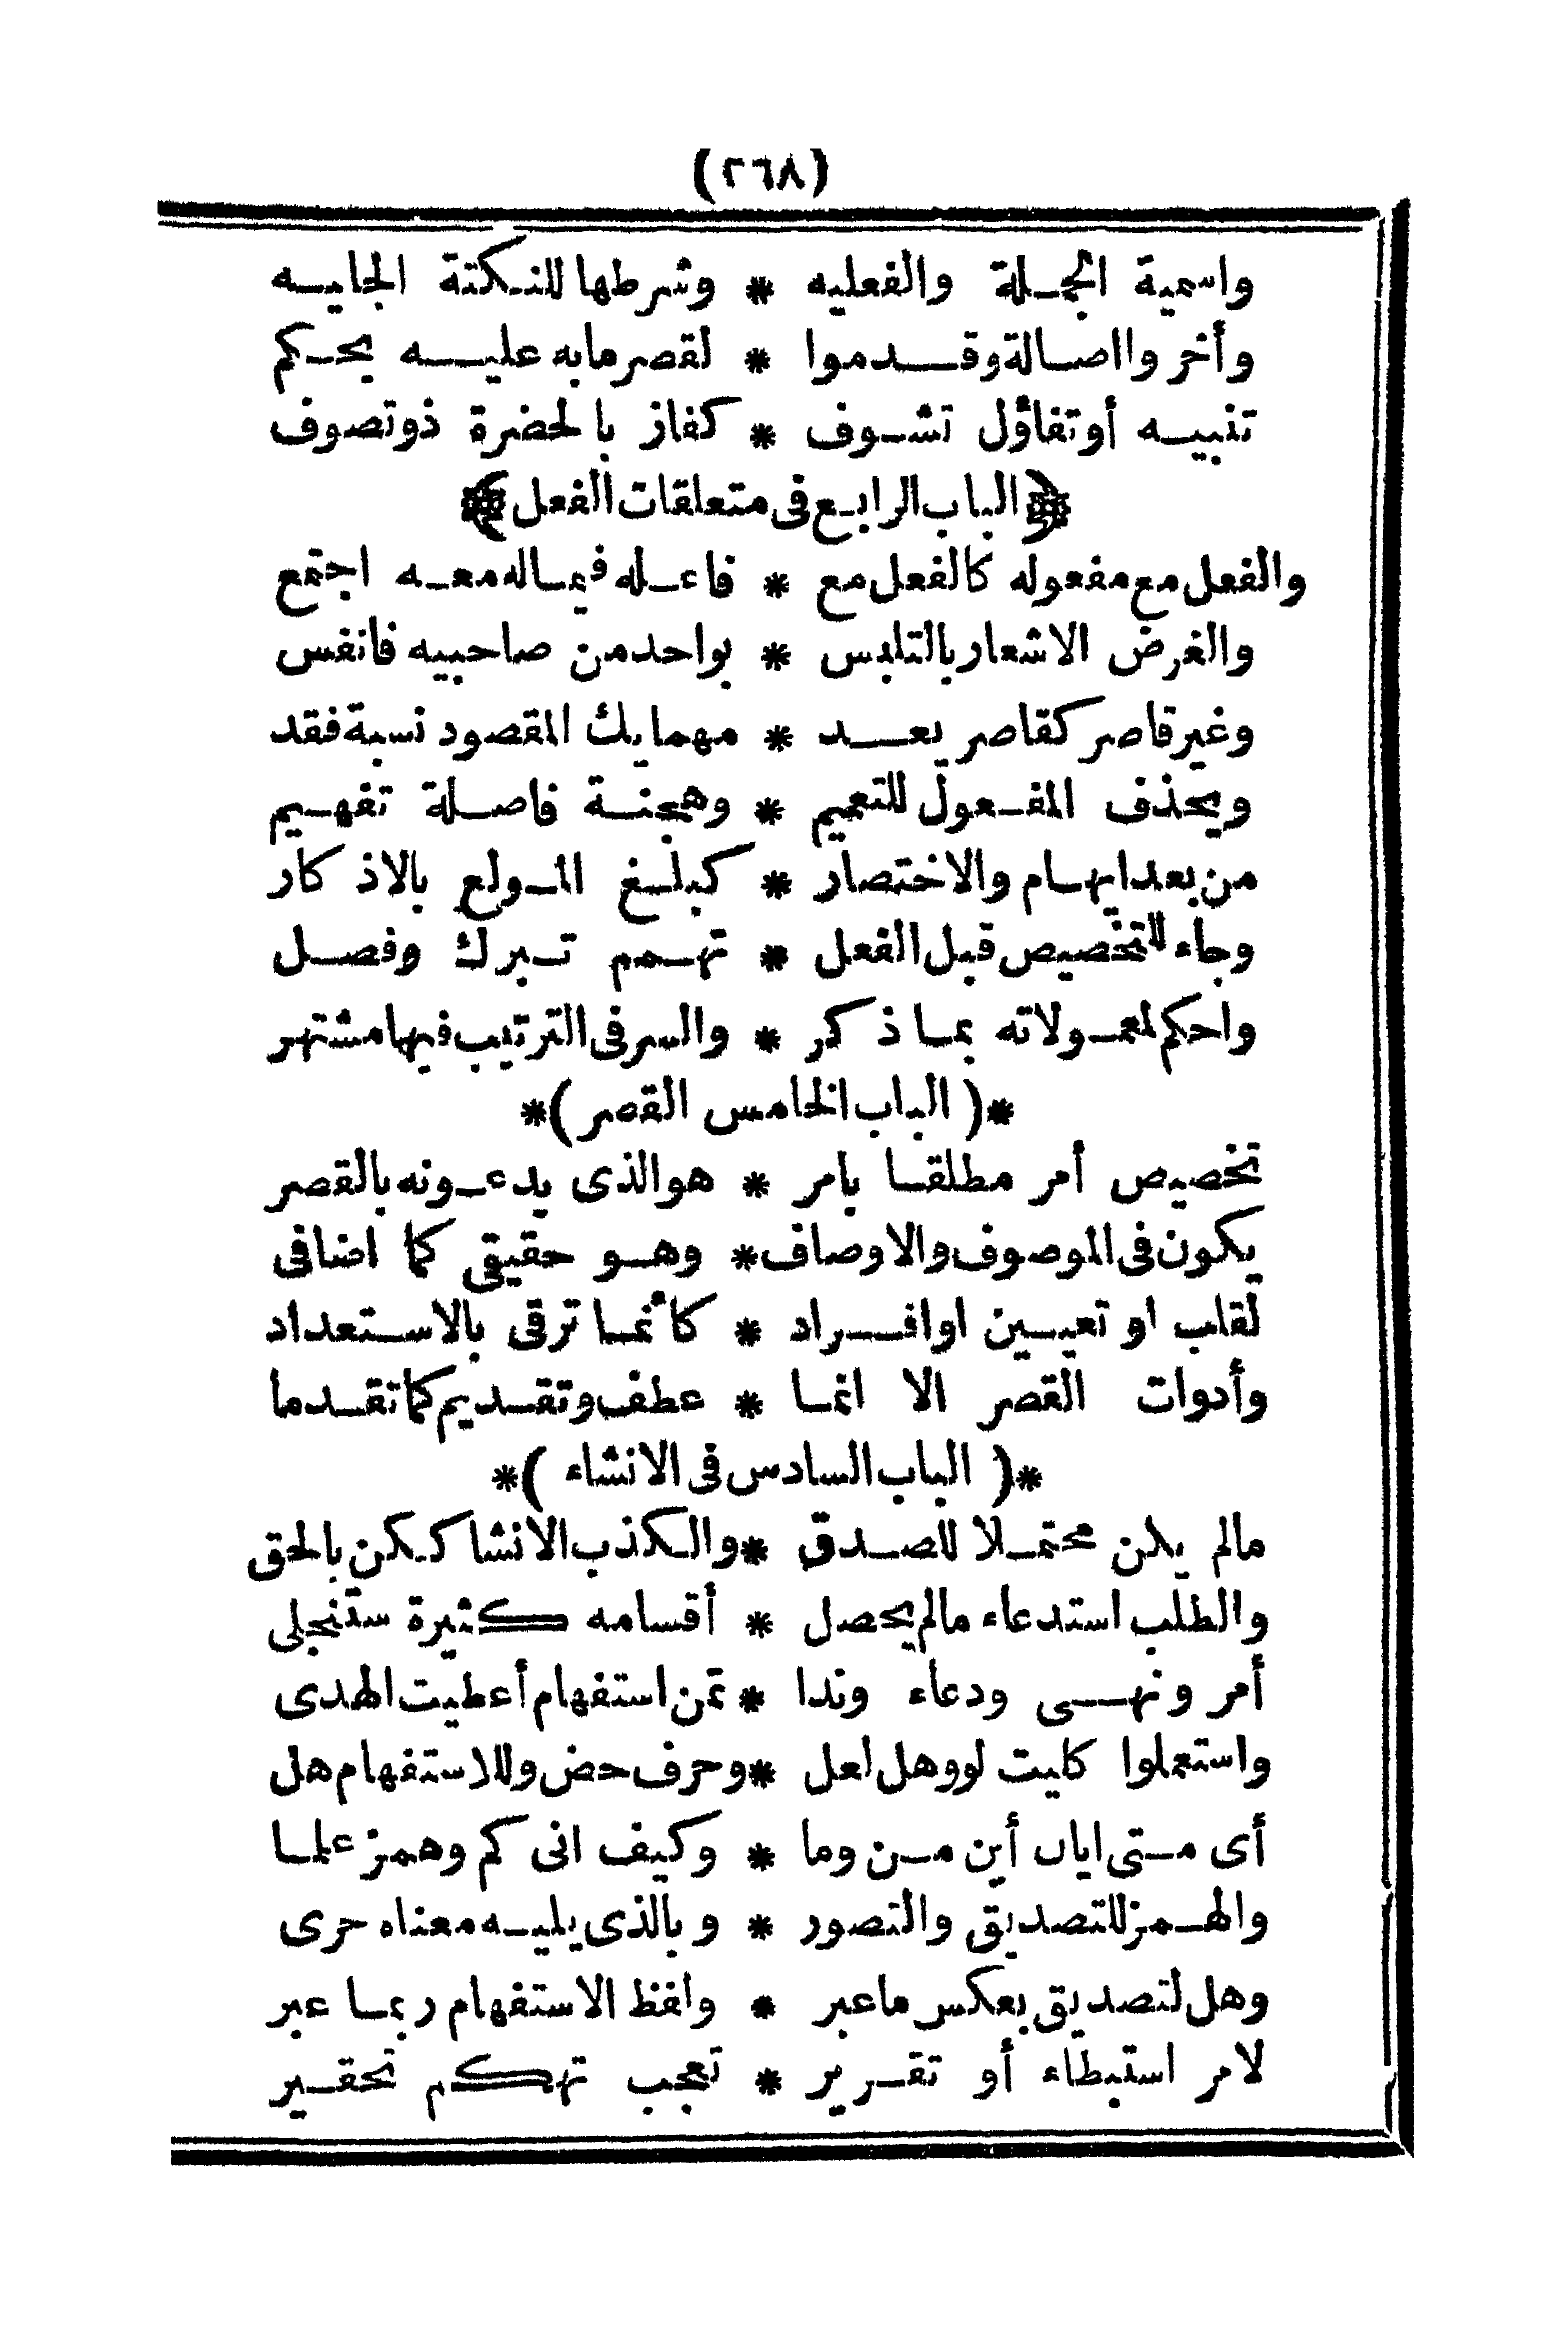 (٢٦٨)
واسمية الجملة والفعليه * وشرطها للنكتة الجاليه
وأخروا اصالة وقدموا * لقصر مابه عليه يحكم
تنبيه أوتفاؤل تشوف * كفاز بالحضرة ذوتصوف
﴿الباب الرابع فى متعلقات الفعل﴾
والفعل مع مفعوله كالفعل مع * فاعله فيماله معه اجتمع
والغرض الاشعار بالتلبس * بواحد من صاحبيه فانفس
وغير قاصر كقاصر يعد * مهما يك المقصود نسبة فقد
ويحذف المفعول للتعميم * وهجنة فاصلة تفهيم
من بعد ابهام والاختصار * كبلغ المولع بالاذكار
وجاء للتخصيص قبل الفعل * تهمم تبرك وفصل
واحكم لمعمولاته بما ذكر * والسر فى الترتيب فيها مشتهر
*( الباب الخامس القصر )*
تخصيص أمر مطلقا بامر * هو الذى يدعونه بالقصر
يكون فى الموصوف والاوصاف * وهو حقيقى كما اضافى
لقلب او تعيين اوافراد * كأنما ترقى بالاستعداد
وأدوات القصر الا انما * عطف وتقديم كما تقدما
*( الباب السادس فى الانشاء )*
مالم يكن محتملا للصدق * والكذب الانشا ككن بالحق
والطلب استدعاء مالم يحصل * أقسامه كثيرة ستنجلى
أمر ونهى ودعاء وندا * تمن استفهام أعطيت الهدى
واستعملوا كليت لو وهل لعل * وحرف حض وللاستفهام هل
أى متى ايان أين من وما * وكيف انى كم وهمز علما
والهمز للتصديق والتصور * وبالذى يليه معناه حرى
وهل لتصديق بعكس ماغبر * ولفظ الاستفهام ربما عبر
لامر استبطاء أو تقرير * تعجب تهكم تحقير